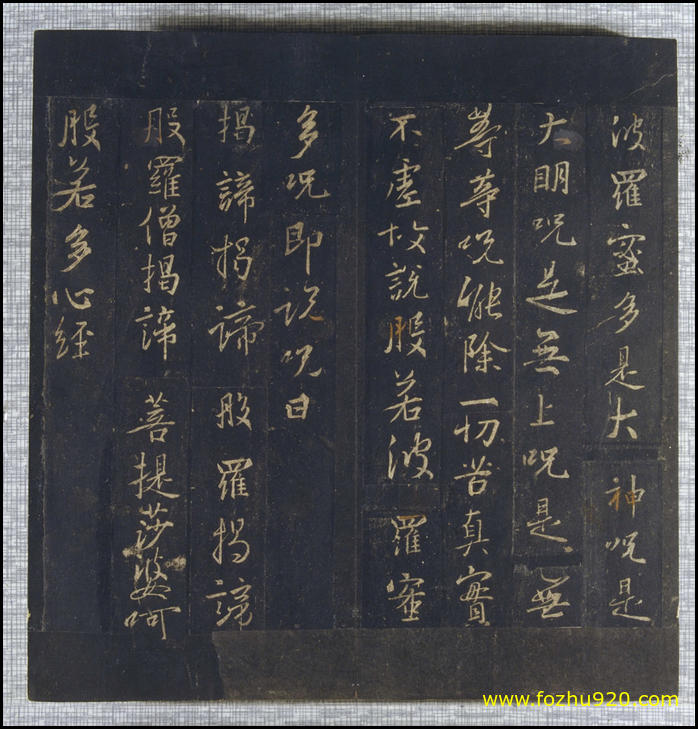 波羅蜜多是大神呪是
大明呪是無上呪是無
等等呪能除一切苦真實
不虛故說般若波羅蜜
多呪即說呪曰
揭諦揭諦般羅揭諦
般羅僧揭諦菩提莎婆呵
般若多心經
www.fozhu920.com